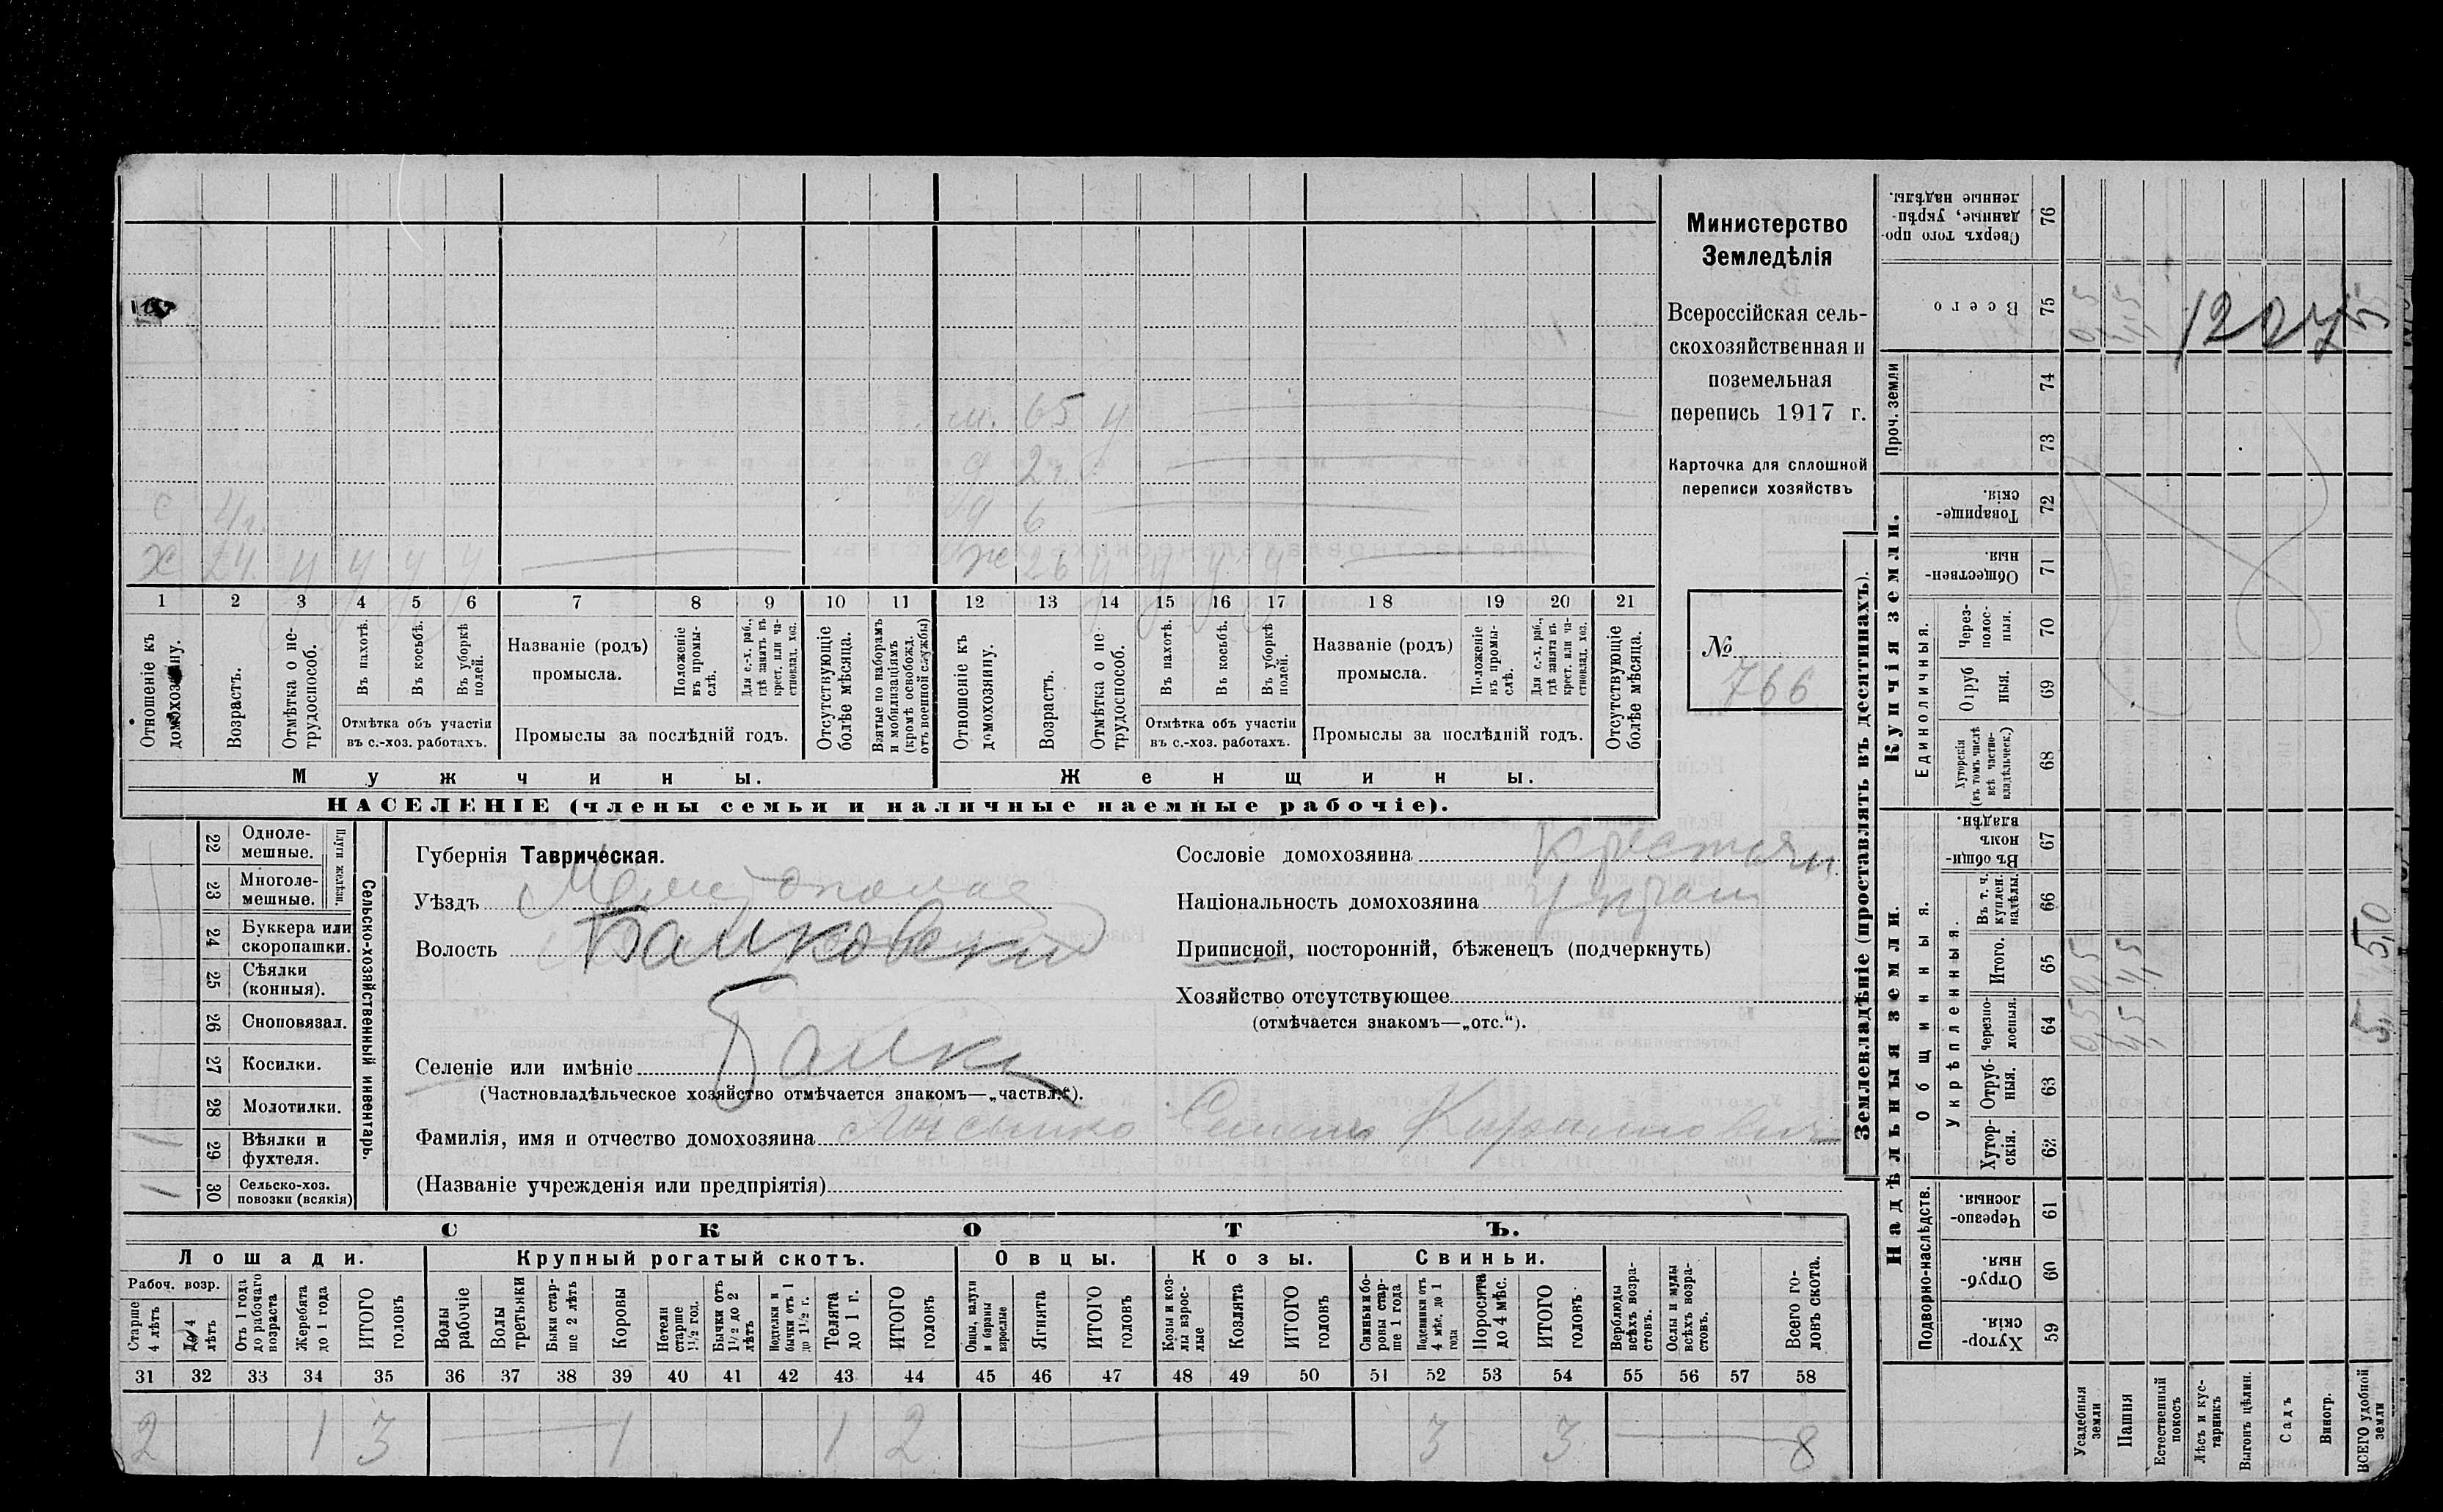 Министерство
Земледѣлія
Всероссійская сель-
скохозяйственная и
поземельная
перепись 1917 г.
Карточка для сплошной
переписи хозяйствъ
№ 766
м. 65 н
д 2 г.
с 4 г. д 6
х 24. ч ч ч ч ж 26 ч ч ч ч
1 2 3 4 5 6 7 8 9 10 11 12 13 14 15 16 17 18 19 20 21
Отношеніе къ домохозяину.
Возрастъ.
Отмѣтка о не-
трудоспособ.
Въ пахотѣ.
Въ косьбѣ.
Въ уборкѣ
полей.
Отмѣтка объ участіи
въ с.-хоз. работахъ.
Названіе (родъ)
промысла.
Положеніе
въ промы-
слѣ.
Для с.-х. раб.,
гдѣ занятъ въ
крест. или ча-
стновлад. хоз.
Промыслы за послѣдній годъ.
Отсутствующіе
болѣе мѣсяца.
Взятые по наборамъ
и мобилизаціямъ
(кромѣ освобожд.
отъ военной службы)
Отношеніе къ
домохозяину.
Возрастъ.
Отмѣтка о не-
трудоспособ.
Въ пахотѣ.
Въ косьбѣ.
Въ уборкѣ
полей.
Отмѣтка объ участіи
въ с.-хоз. работахъ.
Названіе (родъ)
промысла.
Положеніе
въ промы-
слѣ.
Для с.-х. раб.,
гдѣ занята въ
крест. или ча-
стновлад. хоз.
Промыслы за послѣдній годъ.
Отсутствующіе
болѣе мѣсяца.
Мужчины. Женщины.
НАСЕЛЕНІЕ (члены семьи и наличные наемные рабочіе).
22 Одноле-
мешные.
23 Многоле-
мешные.
Плуги желѣзн.
24 Буккера или
скоропашки.
25 Сѣялки
(конныя).
26 Сноповязал.
27 Косилки.
28 Молотилки.
29 Вѣялки и
фухтеля. 1
30 Сельско-хоз.
повозки (всякія) 1
Сельско-хозяйственный инвентарь.
Губернія Таврическая.
Уѣздъ Мелитополь
Волость Балковский
Селеніе или имѣніе Балки
(Частновладѣльческое хозяйство отмѣчается знакомъ—„частвл.“).
Фамилія, имя и отчество домохозяина Лысенко Семен
(Названіе учрежденія или предпріятія)
Сословіе домохозяина Крестьян.
Національность домохозяина Украин
Приписной, посторонній, бѣженецъ (подчеркнуть)
Хозяйство отсутствующее
(отмѣчается знакомъ—„отс.“).
СКОТЪ.
Лошади. Крупный рогатый скотъ. Овцы. Козы. Свиньи.
Рабоч. возр.
Старше
4 лѣтъ
До 4
лѣтъ
Отъ 1 года
до рабочаго
возраста
Жеребята
до 1 года
ИТОГО
головъ
Волы
рабочіе
Волы
третьяки
Быки стар-
ше 2 лѣтъ
Коровы
Нетели
старше
1½ год.
Бычки отъ
1½ до 2
лѣтъ
Подтелки и
бычки отъ 1
до 1½ г.
Телята
до 1 г.
ИТОГО
головъ
Овцы, валухи
и бараны
взрослые
Ягнята
ИТОГО
головъ
Козы и коз-
лы взрос-
лые
Козлята
ИТОГО
головъ
Свиньи и бо-
ровы стар-
ше 1 года
Подсвинки отъ
4 мѣс. до 1
года
Поросята
до 4 мѣс.
ИТОГО
головъ
Верблюды
всѣхъ возра-
стовъ.
Ослы и мулы
всѣхъ возра-
стовъ.
Всего го-
ловъ скота.
31 32 33 34 35 36 37 38 39 40 41 42 43 44 45 46 47 48 49 50 51 52 53 54 55 56 57 58
2 1 3 1 1 2 3 3 8
Землевладѣніе (проставлять въ десятинахъ).
Надѣльныя земли.
Купчія земли.
Проч. земли
Сверхъ того про-
данные, укрѣп-
ленные надѣлы. 76
Всего 75 0,5 4,5 12075
74
73
Товарище-
скія. 72
Обществен-
ныя. 71
Единоличныя.
Через-
полос-
ныя. 70
Отруб
ныя. 69
Хуторскія
(въ томъ числѣ
всѣ частно-
владѣльческ.) 68
Въ общин-
номъ
владѣн. 67
Общинныя.
Укрѣпленныя.
Въ т. ч.
куплен.
надѣлы. 66
Итого. 65 0,5 4,5 5,0
Черезпо-
лосныя. 64 0,5 4,5 5,
Отруб-
ныя. 63
Хутор-
скія. 62
Подворно-наслѣдств.
Черезпо-
лосныя. 61
Отруб-
ныя. 60
Хутор-
скія. 59
Усадебныя
земли
Пашня
Естественный
покосъ
Лѣсъ и кус-
тарникъ
Выгонъ цѣлин.
Садъ
Виногр.
ВСЕГО удобной
земли